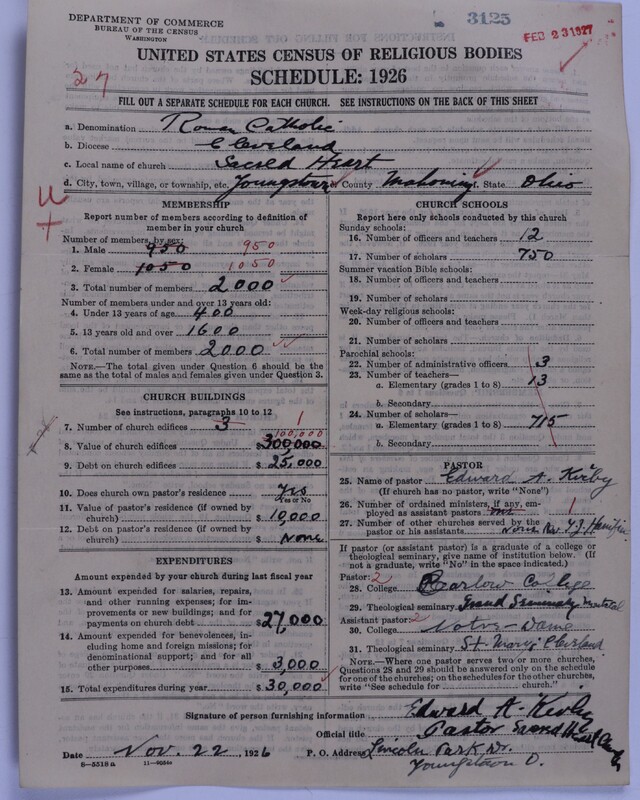 DEPARTMENT OF COMMERCE
BUREAU OF THE CENSUS
WASHINGTON
3125
FEB 23 1927
27
UNITED STATES CENSUS OF RELIGIOUS BODIES
SCHEDULE: 1926
FILL OUT A SEPARATE SCHEDULE FOR EACH CHURCH. SEE INSTRUCTIONS ON THE BACK OF THIS SHEET
a. Denomination Roman Catholic
b. Diocese Cleveland
c. Local name of church Sacred Heart
d. City, town, village, or township, etc. Youngstown County Mahoning State Ohio
MEMBERSHIP
Report number of members according to definition of
member in your church
Number of members, by sex:
1. Male 950 950
2. Female 1050 1050
3. Total number of members 2000
Number of members under and over 13 years old:
4. Under 13 years of age 400
5. 13 years old and over 1600
6. Total number of members 2000
NOTE.—The total given under Question 6 should be
same as the total of males and females given under Question 3.
CHURCH BUILDINGS
See instructions, paragraphs 10 to 12
7. Number of church edifices 3 1
100,000
8. Value of church edifices $ 300,000
9. Debt on church edifices $ 25,000
10. Does church own pastor's residence? Yes
Yes or No
11. Value of pastor's residence (if owned by
church) $ 10,000
12. Debt on pastor's residence (if owned by
church) $ None
EXPENDITURES
Amount expended by your church during last fiscal year
13. Amount expended for salaries, repairs,
and other running expenses; for im-
provements or new buildings; and for
payments on church debt $ 27,000
14. Amount expended for benevolences, in-
cluding home and foreign missions; for
denominational support; and for all
other purposes $ 3,000
15. Total expenditures during year $ 30,000
CHURCH SCHOOLS
Report here only schools conducted by this church
Sunday schools:
16. Number of officers and teachers 12
17. Number of scholars 750
Summer vacation Bible schools:
18. Number of officers and teachers
19. Number of scholars
Week-day religious schools:
20. Number of officers and teachers
21. Number of scholars
Parochial schools:
22. Number of administrative officers 3
23. Number of teachers—
a. Elementary (grades 1 to 8) 13
b. Secondary
24. Number of scholars—
a. Elementary (grades 1 to 8) 715
b. Secondary
PASTOR
25. Name of pastor Edward A. Kirby
(If church has no pastor, write "None")
26. Number of ordained ministers, if any, em-
ployed as assistant pastors
27. Number of other churches served by the
pastor or his assistants None
If pastor (or assistant pastor) is a graduate of a college or
theological seminary, give name of institution below. (If
not a graduate, write "No" in the space indicated.)
Pastor: 2
28. College College
29. Theological seminary Grand Seminary Montreal
Assistant pastor: 2
30. College Notre-Dame
31. Theological seminary St. Mary Cleveland
NOTE.—Where one pastor serves two or more churches,
Questions 28 and 29 should be answered only on the schedule
for one of the churches; on the schedules for the other churches,
write "See schedule for church."
Signature of person furnishing information Edward A. Kirby
Official title Pastor Sacred Heart Church
Date Nov. 22, 1926 P. O. Address Lincoln Park Dr.
Youngstown O.
8-5518a 11-9034